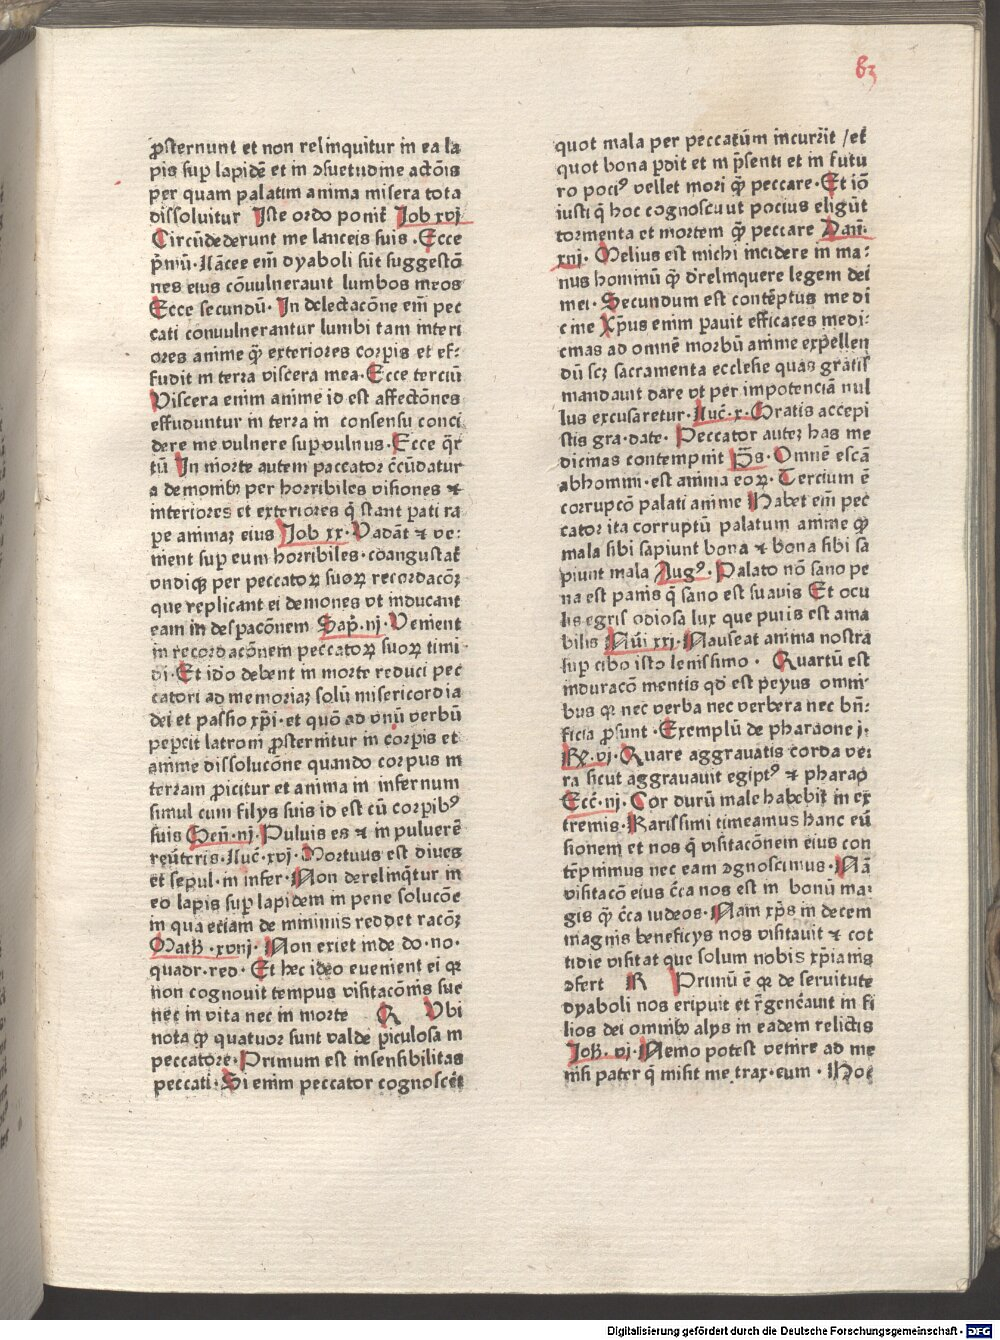 63
p̱sternunt et non relinquitur in ea la
pis sup lapidē et in ↄsuetudine actōis
per quam palatim anima misera tota
dissoluitur Iste ordo ponit᷑ Iob xvj
Circūdederunt me lanceis suis · Ecce
p̄mū · Lācee eīm dyaboli sūt suggestō
nes eius cōuulnerauit lumbos meos
Ecce secundū · In delectacōne eīm pec
cati conuulnerantur lumbi tam interi
ores anime q̄ꝫ exteriores corpis et ef⸗
fudit in terra viscera mea · Ecce terciū
Viscera enim anime id est affectōnes
effuduntur in terra in consensu conci
dere me vulnere sup vulnus · Ecce q̄r
tū In morte autem paccator c̄cūdatur
a demonibꝰ per horribiles visiones ⁊
interiores et exteriores q̄ stant pati ra
pe animaꝫ eius Iob xx · Vadāt ⁊ ve⸗
nient sup eum horribiles · coangustat᷑
vndiqꝫ per peccatoꝝ suoꝝ recordacōꝫ
que replicant ei demones vt inducant
eam in despacōnem Sap̄ · iiij · Venient
in recordacōnem peccatoꝝ suoꝝ timi
di · Et idō debent in morte reduci pec
catori ad memoriaꝫ solū misericordia
dei et passio xp̄i · et quō ad vnū verbū
pepcit latroni p̱sternitur in corpis et
anime dissolucōne quando corpus in
terram p̱icitur et anima in infernum
simul cum filys suis id est cū corpibꝰ
suis Gen̄ · iij · Puluis es ⁊ in puluerē
reūteris · Luc̄ · xvj · Mortuus est diues
et sepul · in infer · Non derelinq̄tur in
eo lapis sup lapidem in pene solucōe
in qua etiam de minimis reddet racōꝫ
Math̄ · xviij · Non exiet inde do · no ·
quadr · red · Et hec ideo euenient ei qꝛ
non cognouit tempus visitacōnis sue
nec in vita nec in morte R Vbi
nota q̄ꝫ quatuor sunt valde p̱iculosa in
peccatore · Primum est insensibilitas
peccati · Si enim peccator cognoscet᷑
quot mala per peccatum incurrit / et
quot bona p̱dit et in p̄senti et in futu
ro pociꝰ vellet mori q̄ꝫ peccare · Et iō
iusti q̄ hoc cognoscūut pocius eligūt
tormenta et mortem q̄ꝫ peccare Dani̅ ·
xiij · Melius est michi incidere in ma⸗
nus hominū q̄ꝫ d̄relinquere legem dei
mei · Secundum est contēptus medi
cine Xp̄us enim parauit efficaces medi⸗
cinas ad omnē morbū anime expellen
dū scꝫ sacramenta ecclesie quas gratis
mandauit dare vt per impotenciā nul
lus excusaretur · Luc̄ · x · Gratis accepi
stis gra · date · Peccator auteꝫ has me
dicinas contempnit P̄s · Omnē escā
abhomini · est anima eoꝝ · Tercium ē
corrupcō palati anime Habet eīm pec
cator ita corruptū palatum anime q̄ꝫ
mala sibi sapiunt bona ⁊ bona sibi sa
piunt mala Augꝰ · Palato nō sano pe
na est panis q̄ sano est suauis Et ocu
lis egris odiosa lux que puris est ama
bilis Nūi xxj · Nauseat anima nostra
sup cibo isto leuissimo · Quartū est
induracō mentis qd̄ est peyus omni⸗
bus qꝛ nec verba nec verbera nec bn̄⸗
ficia p̱sunt · Exemplū de pharaone j ·
Re̅ · vj · Quare aggrauatis corda ve⸗
ra sicut aggrauauit egiptꝰ ⁊ pharao
Ecc̄ · iij · Cor durū male habebit in ex
tremis · Karissimi timeamus hanc eū
sionem et nos q̄ visitacōnem eius con
tēpnimus nec eam ↄgnoscimus · Nā
visitacō eius c̄ca nos est in bonū ma⸗
gis q̄ꝫ c̄ca iudeos · Nam xp̄s in decem
magnis beneficys nos visitauit ⁊ cot
tidie visitat que solum nobis xp̄ianis
ↄfert R Primū ē qꝛ de seruitute
dyaboli nos eripuit et r̄genēauit in fi
lios dei omnibꝰ alys in eadem relictis
Joh̄ · vj · Nemo potest venire ad me
nisi pater q̄ misit me trax · eum · Hoc
Digitalisierung gefördert durch die Deutsche Forschungsgemeinschaft - DFG